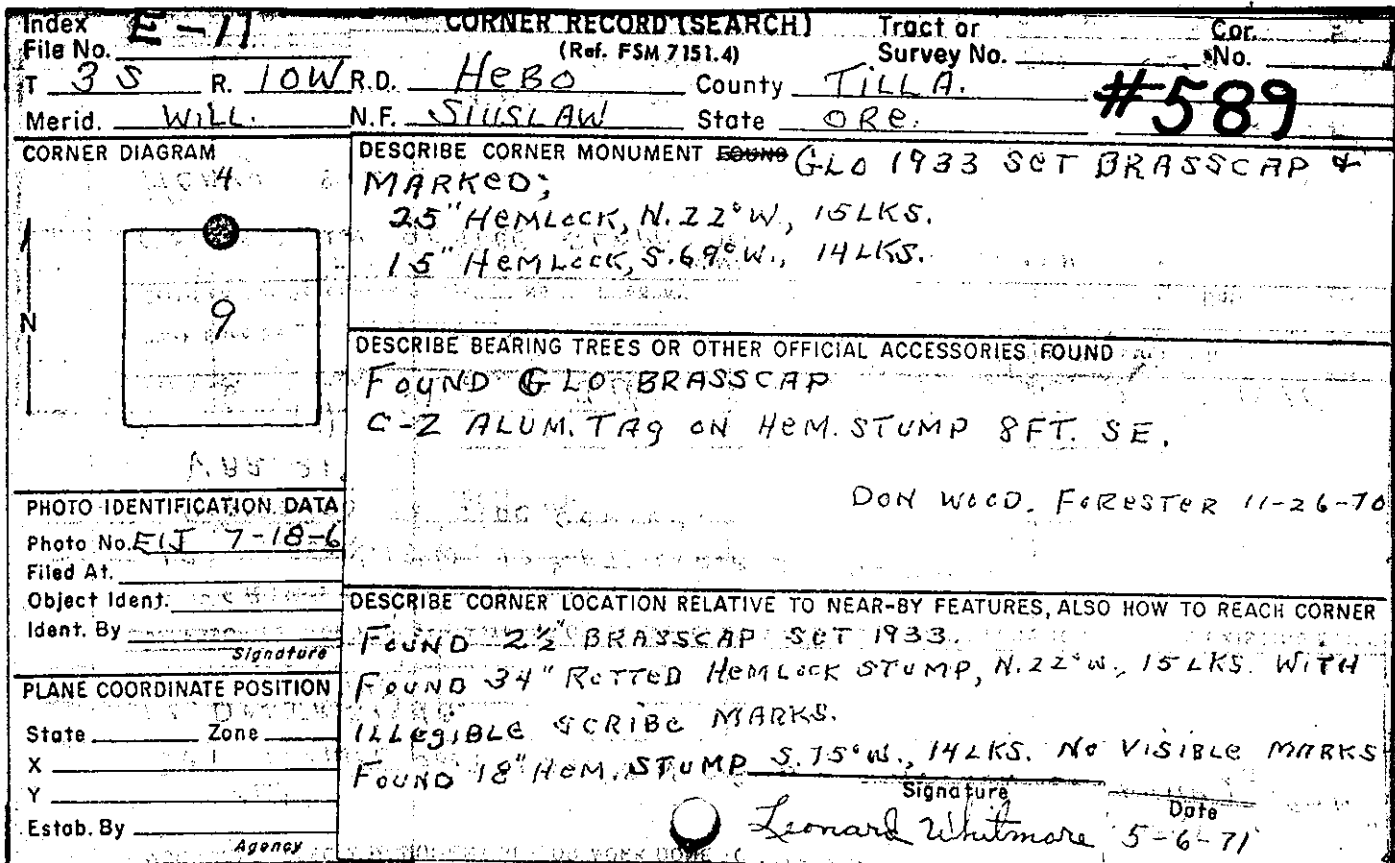 Index File No. E-11 CORNER RECORD (SEARCH) Tract or Survey No. Cor. No.
(Ref. FSM 7151.4)
T 3 S R. 10W R.D. HEBO County TILLA. #589
Merid. WILL. N.F. SIUSLAW State ORE.
CORNER DIAGRAM
4
9
N
PHOTO IDENTIFICATION DATA
Photo No. EIJ 7-18-6
Filed At.
Object Ident.
Ident. By
Signature
PLANE COORDINATE POSITION
State Zone
X
Y
Estab. By
Agency
DESCRIBE CORNER MONUMENT FOUND GLO 1933 SET BRASSCAP &
MARKED;
25" HEMLOCK, N. 22° W., 15 LKS.
15" HEMLOCK, S. 69° W., 14 LKS.
DESCRIBE BEARING TREES OR OTHER OFFICIAL ACCESSORIES FOUND
FOUND GLO BRASSCAP
C-Z ALUM. TAG ON HEM. STUMP 8FT. SE.
DON WOOD. FORESTER 11-26-70
DESCRIBE CORNER LOCATION RELATIVE TO NEAR-BY FEATURES, ALSO HOW TO REACH CORNER
FOUND 2½" BRASSCAP SET 1933.
FOUND 34" ROTTED HEMLOCK STUMP, N. 22° W., 15 LKS. WITH
ILLEGIBLE SCRIBE MARKS.
FOUND 18" HEM. STUMP S. 75° W., 14 LKS. NO VISIBLE MARKS
Signature Date
Leonard Whitmore 5-6-71